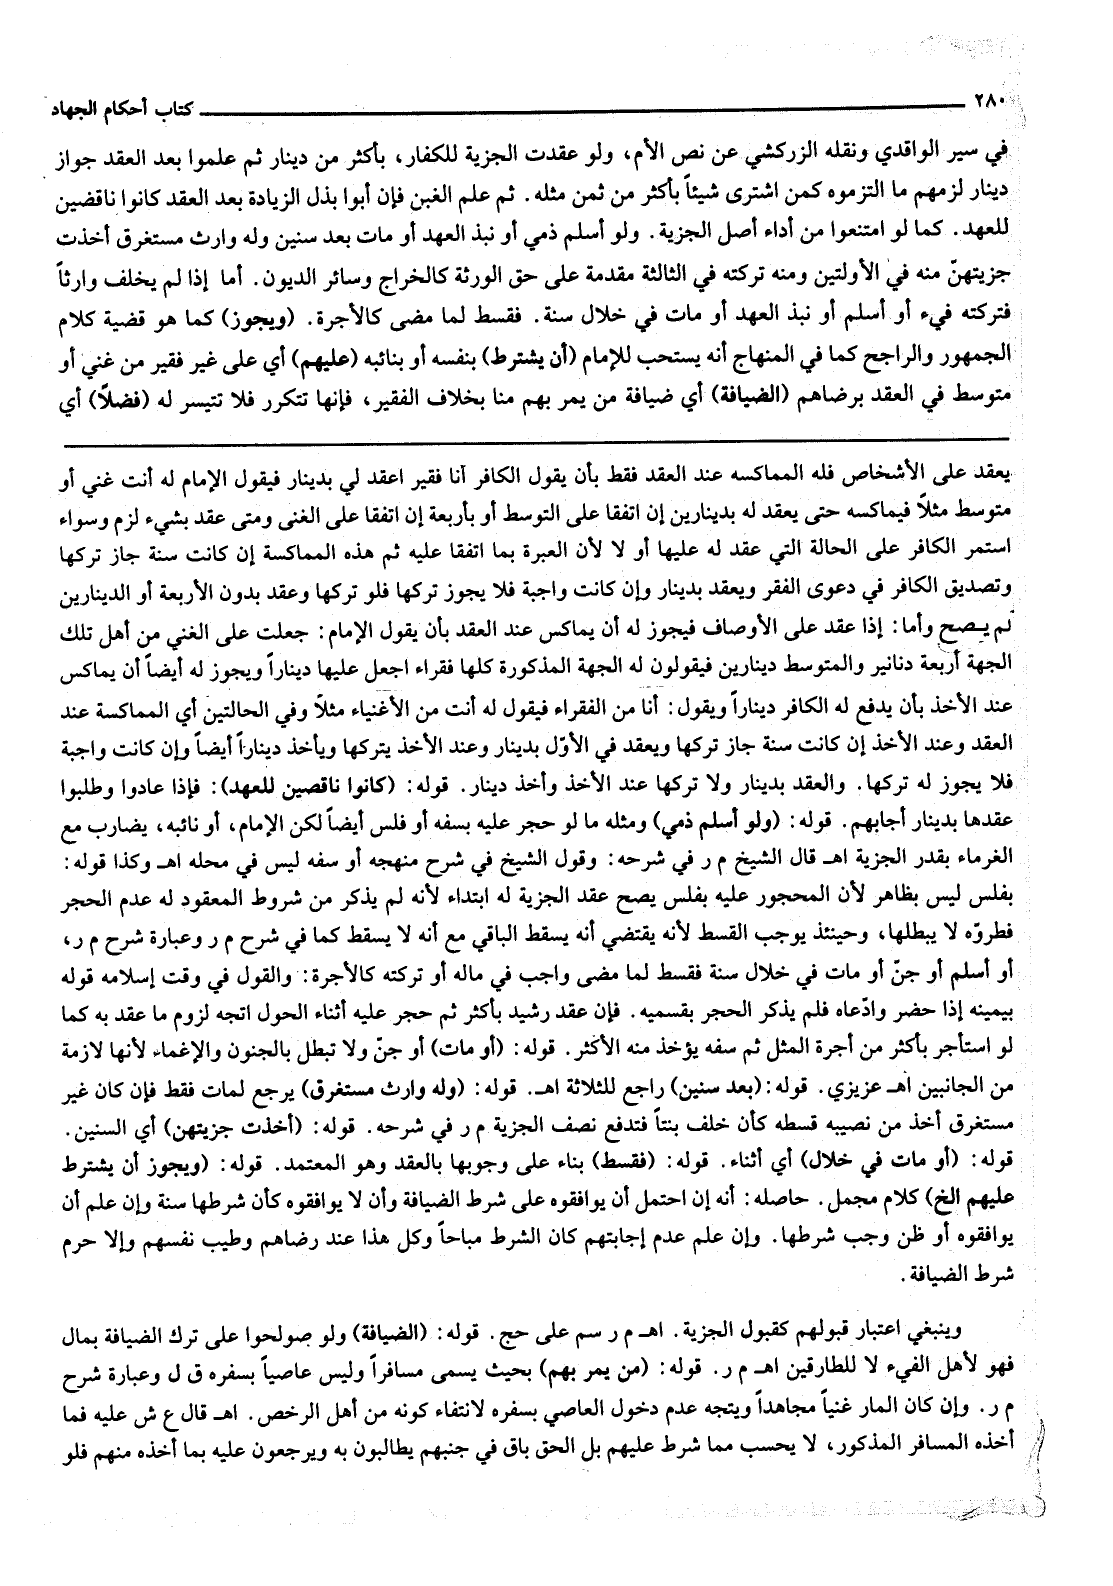 ٢٨٠ كتاب أحكام الجهاد
في سير الواقدي ونقله الزركشي عن نص الأم، ولو عقدت الجزية للكفار، بأكثر من دينار ثم علموا بعد العقد جواز
دينار لزمهم ما التزموه كمن اشترى شيئاً بأكثر من ثمن مثله. ثم علم الغبن فإن أبوا بذل الزيادة بعد العقد كانوا ناقضين
للعهد. كما لو امتنعوا من أداء أصل الجزية. ولو أسلم ذمي أو نبذ العهد أو مات بعد سنين وله وارث مستغرق أخذت
جزيتهنّ منه في الأولتين ومنه تركته في الثالثة مقدمة على حق الورثة كالخراج وسائر الديون. أما إذا لم يخلف وارثاً
فتركته فيء أو أسلم أو نبذ العهد أو مات في خلال سنة. فقسط لما مضى كالأجرة. (ويجوز) كما هو قضية كلام
الجمهور والراجح كما في المنهاج أنه يستحب للإمام (أن يشترط) بنفسه أو بنائبه (عليهم) أي على غير فقير من غني أو
متوسط في العقد برضاهم (الضيافة) أي ضيافة من يمر بهم منا بخلاف الفقير، فإنها تتكرر فلا تتيسر له (فضلاً) أي
يعقد على الأشخاص فله المماكسه عند العقد فقط بأن يقول الكافر آنا فقير اعقد لي بدينار فيقول الإمام له أنت غني أو
متوسط مثلاً فيماكسه حتى يعقد له بدينارين إن اتفقا على التوسط أو بأربعة إن اتفقا على الغنى ومتى عقد بشيء لزم وسواء
استمر الكافر على الحالة التي عقد له عليها أو لا لأن العبرة بما اتفقا عليه ثم هذه المماكسة إن كانت سنة جاز تركها
وتصديق الكافر في دعوى الفقر ويعقد بدينار وإن كانت واجبة فلا يجوز تركها فلو تركها وعقد بدون الأربعة أو الدينارين
لم يصح وأما: إذا عقد على الأوصاف فيجوز له أن يماكس عند العقد بأن يقول الإمام: جعلت على الغني من أهل تلك
الجهة أربعة دنانير والمتوسط دينارين فيقولون له الجهة المذكورة كلها فقراء اجعل عليها ديناراً ويجوز له أيضاً أن يماكس
عند الأخذ بأن يدفع له الكافر ديناراً ويقول: أنا من الفقراء فيقول له أنت من الأغنياء مثلاً وفي الحالتين أي المماكسة عند
العقد وعند الأخذ إن كانت سنة جاز تركها ويعقد في الأوّل بدينار وعند الأخذ يتركها ويأخذ ديناراً أيضاً وإن كانت واجبة
فلا يجوز له تركها. والعقد بدينار ولا تركها عند الأخذ وأخذ دينار. قوله: (كانوا ناقصين للعهد): فإذا عادوا وطلبوا
عقدها بدينار أجابهم. قوله: (ولو أسلم ذمي) ومثله ما لو حجر عليه بسفه أو فلس أيضاً لكن الإمام، أو نائبه، يضارب مع
الغرماء بقدر الجزية اهـ قال الشيخ م ر في شرحه: وقول الشيخ في شرح منهجه أو سفه ليس في محله اهـ وكذا قوله:
بفلس ليس بظاهر لأن المحجور عليه بفلس يصح عقد الجزية له ابتداء لأنه لم يذكر من شروط المعقود له عدم الحجر
فطروّه لا يبطلها، وحينئذ يوجب القسط لأنه يقتضي أنه يسقط الباقي مع أنه لا يسقط كما في شرح م ر وعبارة شرح م ر،
أو أسلم أو جنّ أو مات في خلال سنة فقسط لما مضى واجب في ماله أو تركته كالأجرة: والقول في وقت إسلامه قوله
بيمينه إذا حضر وادّعاه فلم يذكر الحجر بقسميه. فإن عقد رشيد بأكثر ثم حجر عليه أثناء الحول اتجه لزوم ما عقد به كما
لو استأجر بأكثر من أجرة المثل ثم سفه يؤخذ منه الأكثر. قوله: (أو مات) أو جنّ ولا تبطل بالجنون والإغماء لأنها لازمة
من الجانبين اهـ عزيزي. قوله: (بعد سنين) راجع للثلاثة اهـ. قوله: (وله وارث مستغرق) يرجع لمات فقط فإن كان غير
مستغرق أخذ من نصيبه قسطه كأن خلف بنتاً فتدفع نصف الجزية م ر في شرحه. قوله: (أخذت جزيتهن) أي السنين.
قوله: (أو مات في خلال) أي أثناء. قوله: (فقسط) بناء على وجوبها بالعقد وهو المعتمد. قوله: (ويجوز أن يشترط
عليهم الخ) كلام مجمل. حاصله: أنه إن احتمل أن يوافقوه على شرط الضيافة وأن لا يوافقوه كأن شرطها سنة وإن علم أن
يوافقوه أو ظن وجب شرطها. وإن علم عدم إجابتهم كان الشرط مباحاً وكل هذا عند رضاهم وطيب نفسهم وإلا حرم
شرط الضيافة.
وينبغي اعتبار قبولهم كقبول الجزية. اهـ م ر سم على حج. قوله: (الضيافة) ولو صولحوا على ترك الضيافة بمال
فهو لأهل الفيء لا للطارقين اهـ م ر. قوله: (من يمر بهم) بحيث يسمى مسافراً وليس عاصياً بسفره ق ل وعبارة شرح
م ر. وإن كان المار غنياً مجاهداً ويتجه عدم دخول العاصي بسفره لانتفاء كونه من أهل الرخص. اهـ قال ع ش عليه فما
أخذه المسافر المذكور، لا يحسب مما شرط عليهم بل الحق باق في جنبهم يطالبون به ويرجعون عليه بما أخذه منهم فلو